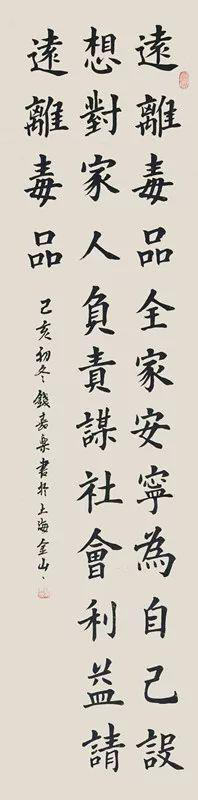 遠離毒品全家安寧為自己設
想對家人負責謀社會利益請
遠離毒品
己亥初冬錢壽奉書於上海金山